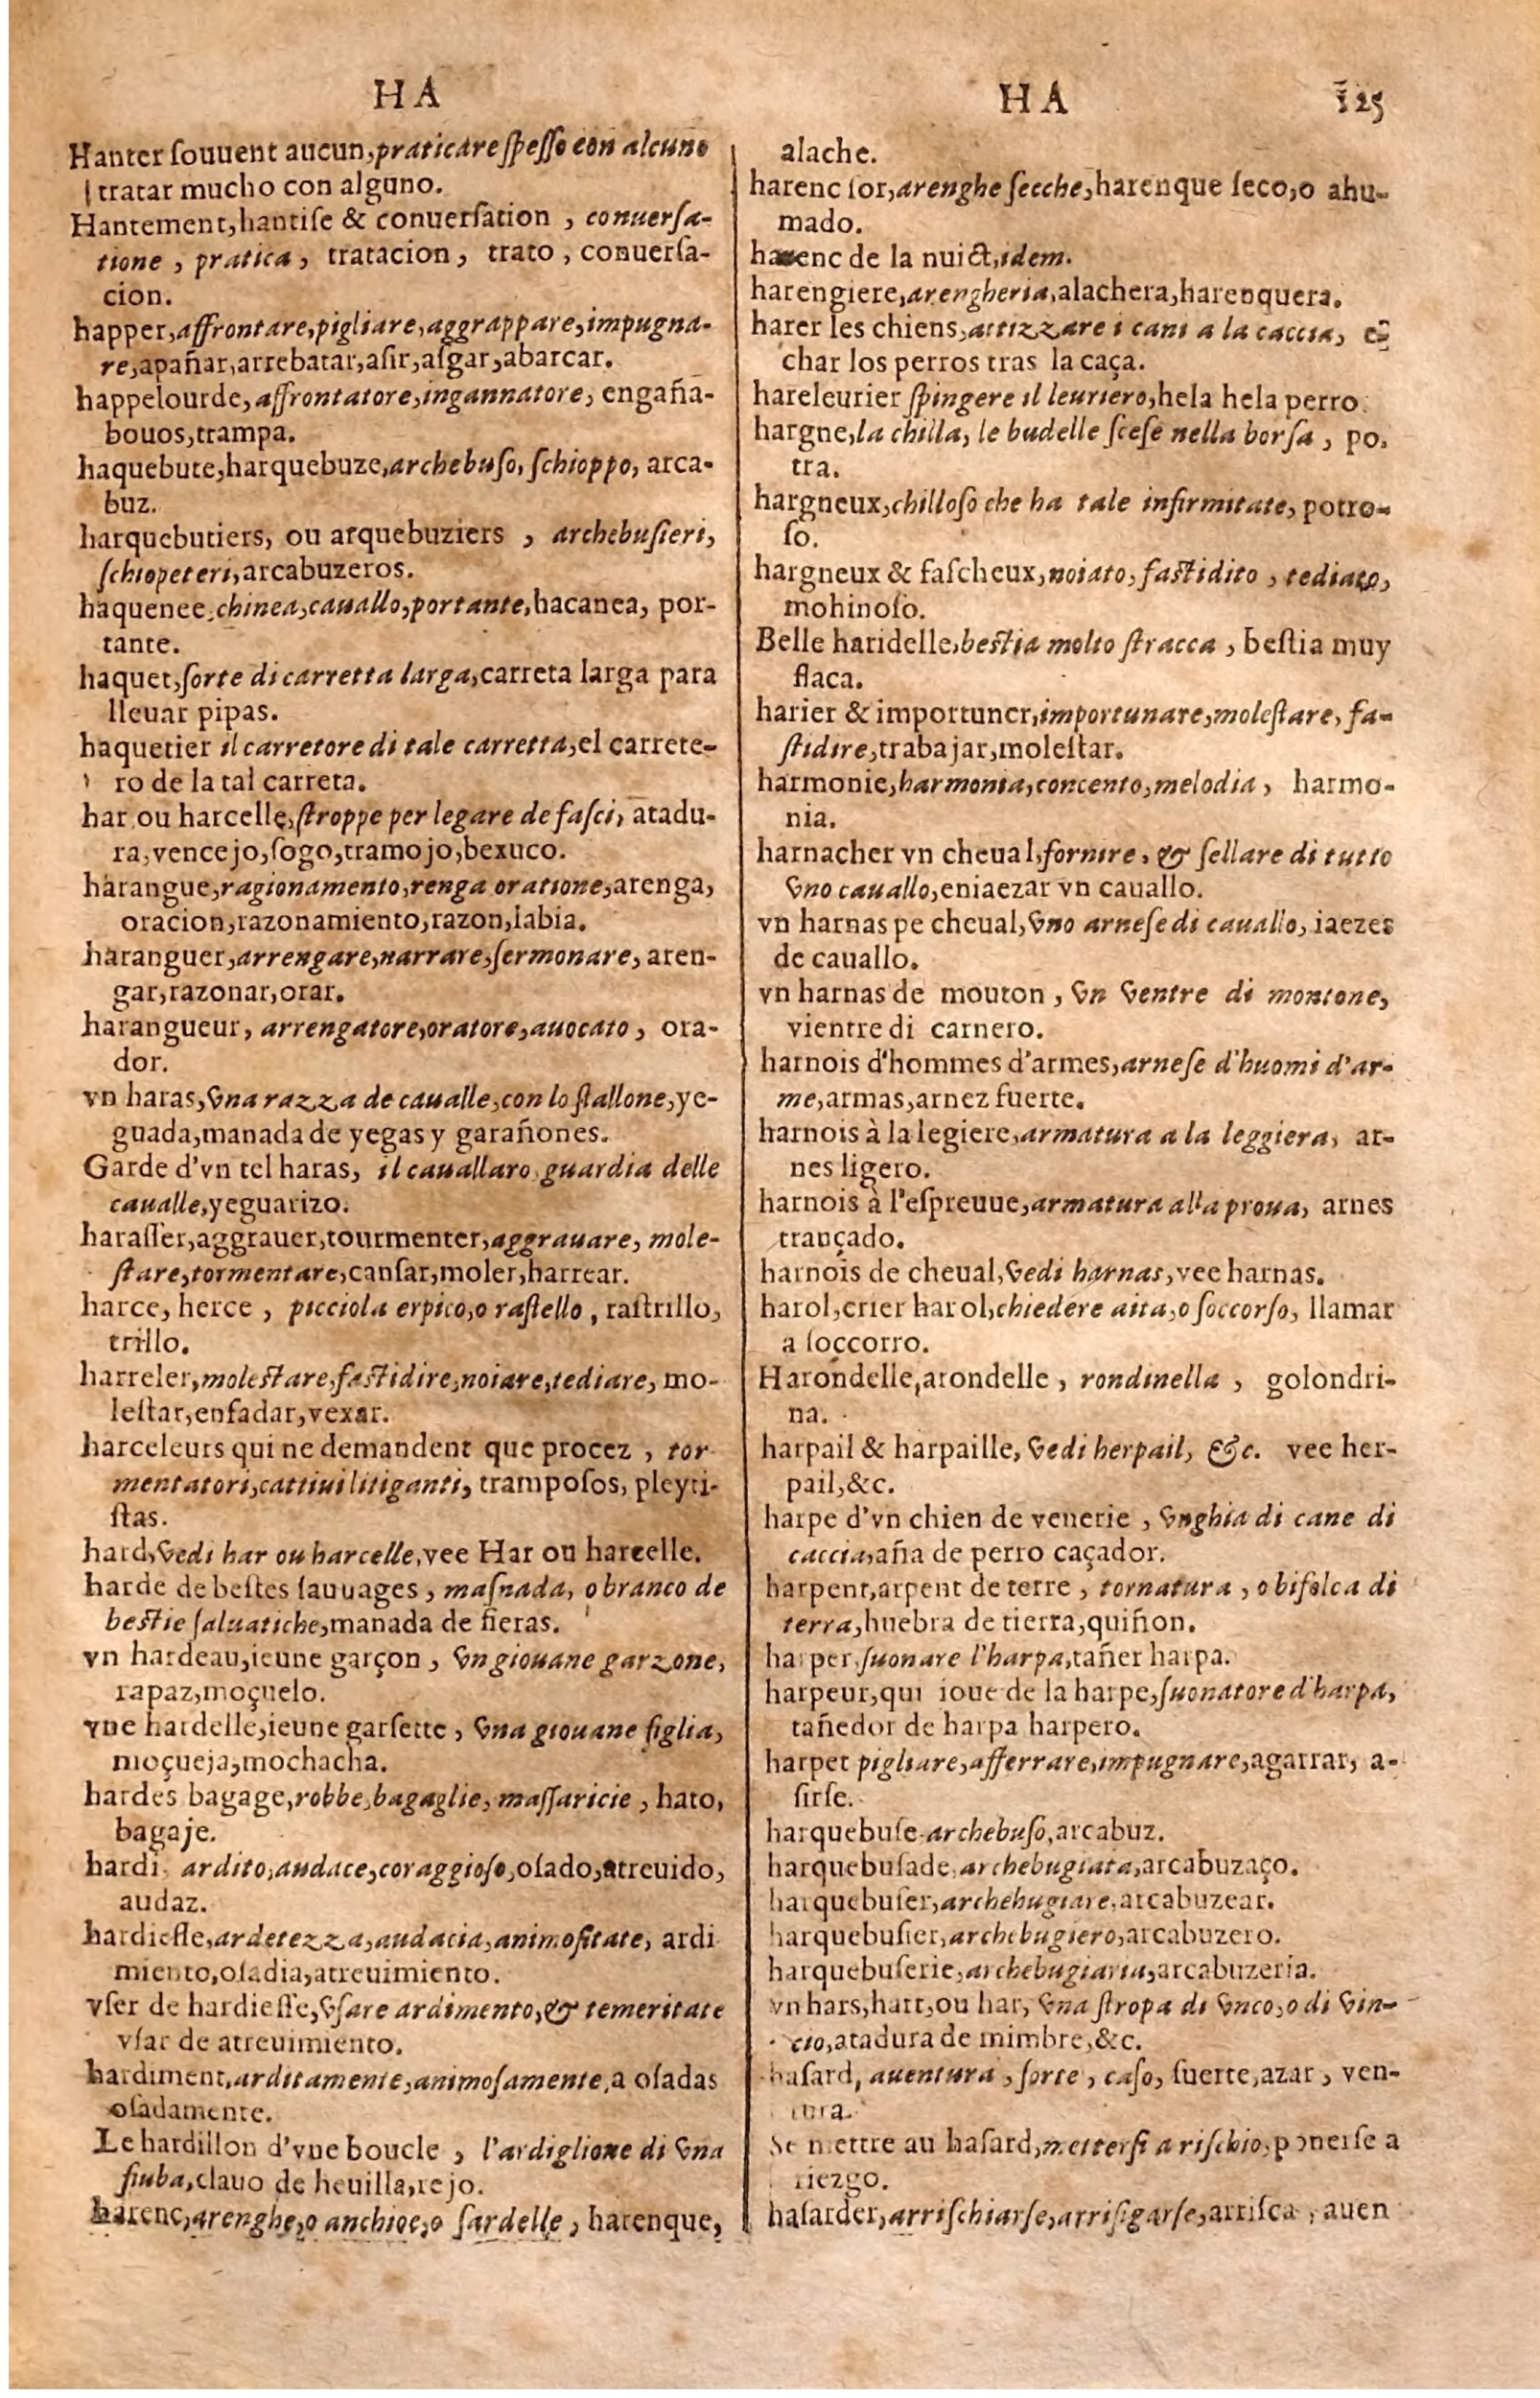 HA
Hanter ſouuent aucun, praticare ſpeſſo con alcuno
tratar mucho con alguno.
Hantement, hantiſe & conuerſation, conuerſa-
tione, pratica, tratacion, trato, conuerſa-
cion.
happer, affrontare, pigliare, aggrappare, impugna-
re, apañar, arrebatar, aſir, aſgar, abarcar.
happelourde, affrontatore, ingannatore, engaña-
bouos, trampa.
haquebute, harquebuze, archebuſo, ſchioppo, arca-
buz.
harquebutiers, ou arquebuziers, archebuſieri,
ſchiopeteri, arcabuzeros.
haquenee, chinea, cauallo, portante, hacanea, por-
tante.
haquet, ſorte di carretta larga, carreta larga para
lleuar pipas.
haquetier il carretore di tale carretta, el carrete-
ro de la tal carreta.
har, ou harcelle, ſtroppe per legare de faſci, atadu-
ra, vencejo, ſogo, tramojo, bexuco.
harangue, ragionamento, renga oratione, arenga,
oracion, razonamiento, razon, labia.
haranguer, arrengare, narrare, ſermonare, aren-
gar, razonar, orar.
harangueur, arrengatore, oratore, auocato, ora-
dor.
vn haras, vna razza de caualle, con lo ſtallone, ye-
guada, manada de yegas y garañones.
Garde d'vn tel haras, il cauallaro, guardia delle
caualle, yeguarizo.
haraſſer, aggrauer, tourmenter, aggrauare, mole-
ſtare, tormentare, canſar, moler, harrear.
harce, herce, picciola erpico, o raſtello, raſtrillo,
trillo.
harreler, moleſtare, faſtidire, noiare, tediare, mo-
leſtar, enfadar, vexar.
harceleurs qui ne demandent que procez, tor-
mentatori, cattiui litiganti, trampoſos, pleyti-
ſtas.
hard, vedi har ou harcelle, vee Har ou harcelle.
harde de beſtes ſauuages, maſnada, o branco de
beſtie ſaluatiche, manada de fieras.
vn hardeau, ieune garçon, vn giouane garzone,
rapaz, moçuelo.
vne hardelle, ieune garſette, vna giouane figlia,
moçueja, mochacha.
hardes bagage, robbe, bagaglie, maſſaricie, hato,
bagaje.
hardi, ardito, audace, coraggioſo, oſado, atreuido,
audaz.
hardieſſe, ardetezza, audacia, animoſitate, ardi
miento, oſadia, atreuimiento.
vſer de hardieſſe, vſare ardimento, & temeritate
vſar de atreuimiento.
hardiment, arditamente, animoſamente, a oſadas
oſadamente.
Le hardillon d'vne boucle, l'ardiglione di vna
fiuba, clauo de heuilla, rejo.
harenc, arenghe, o anchioe, o ſardelle, harenque,
HA 125
alache.
harenc ſor, arenghe ſecche, harenque ſeco, o ahu-
mado.
harenc de la nuict, idem.
harengiere, arengheria, alachera, harenquera.
harer les chiens, attizzare i cani a la caccia, e-
char los perros tras la caça.
hareleurier ſpingere il leuriero, hela hela perro.
hargne, la chilla, le budelle ſceſe nella borſa, po-
tra.
hargneux, chilloſo che ha tale infirmitate, potro-
ſo.
hargneux & faſcheux, noiato, faſtidito, tediato,
mohinoſo.
Belle haridelle, beſtia molto ſtracca, beſtia muy
flaca.
harier & importuner, importunare, moleſtare, fa-
ſtidire, trabajar, moleſtar.
harmonie, harmonia, concento, melodia, harmo-
nia.
harnacher vn cheual, fornire, & ſellare di tutto
vno cauallo, eniaezar vn cauallo.
vn harnas pe cheual, vno arneſe di cauallo, iaezes
de cauallo.
vn harnas de mouton, vn ventre di montone,
vientre di carnero.
harnois d'hommes d'armes, arneſe d'huomi d'ar-
me, armas, arnez fuerte.
harnois à la legiere, armatura a la leggiera, ar-
nes ligero.
harnois à l'eſpreuue, armatura alla proua, arnes
trançado.
harnois de cheual, vedi harnas, vee harnas.
harol, crier harol, chiedere aita, o ſoccorſo, llamar
a ſoccorro.
Harondelle, arondelle, rondinella, golondri-
na.
harpail & harpaille, vedi herpail, &c. vee her-
pail, &c.
harpe d'vn chien de venerie, vnghia di cane di
caccia, aña de perro caçador.
harpent, arpent de terre, tornatura, o bifolca di
terra, huebra de tierra, quiñon.
harper, ſuonare l'harpa, tañer harpa.
harpeur, qui ioue de la harpe, ſuonatore d'harpa,
tañedor de harpa harpero.
harpet pigliare, afferrare, impugnare, agarrar, a-
ſirſe.
harquebuſe, archebuſo, arcabuz.
harquebuſade, archebugiata, arcabuzaço.
harquebuſer, archebugiare, arcabuzear.
harquebuſier, archebugiero, arcabuzero.
harquebuſerie, archebugiaria, arcabuzeria.
vn hars, hart, ou har, vna ſtropa di vnco, o di vin-
cio, atadura de mimbre, &c.
haſard, auentura, ſorte, caſo, ſuerte, azar, ven-
tura.
Se mettre au haſard, metterſi a riſchio, ponerſe a
riezgo.
haſarder, arriſchiarſe, arriſigarſe, arriſca, auen